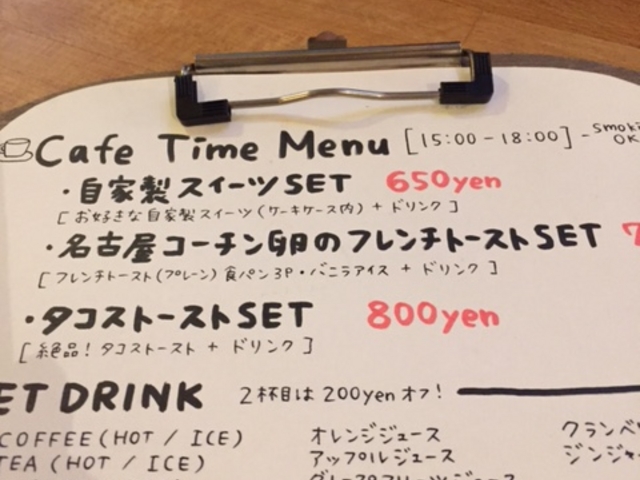 Cafe Time Menu [15:00-18:00] - Smoki
OK
・自家製スイーツSET 650yen
[お好きな自家製スイーツ(ケーキケース内) + ドリンク]
・名古屋コーチン卵のフレンチトーストSET 7
[フレンチトースト(プレーン) 食パン3P・バニラアイス + ドリンク]
・タコストーストSET 800yen
[絶品! タコストースト + ドリンク]
ET DRINK 2杯目は 200yen オフ!
COFFEE (HOT / ICE) オレンジジュース クランベ
TEA (HOT / ICE) アップルジュース ジンジャ
グレープフルーツジュース